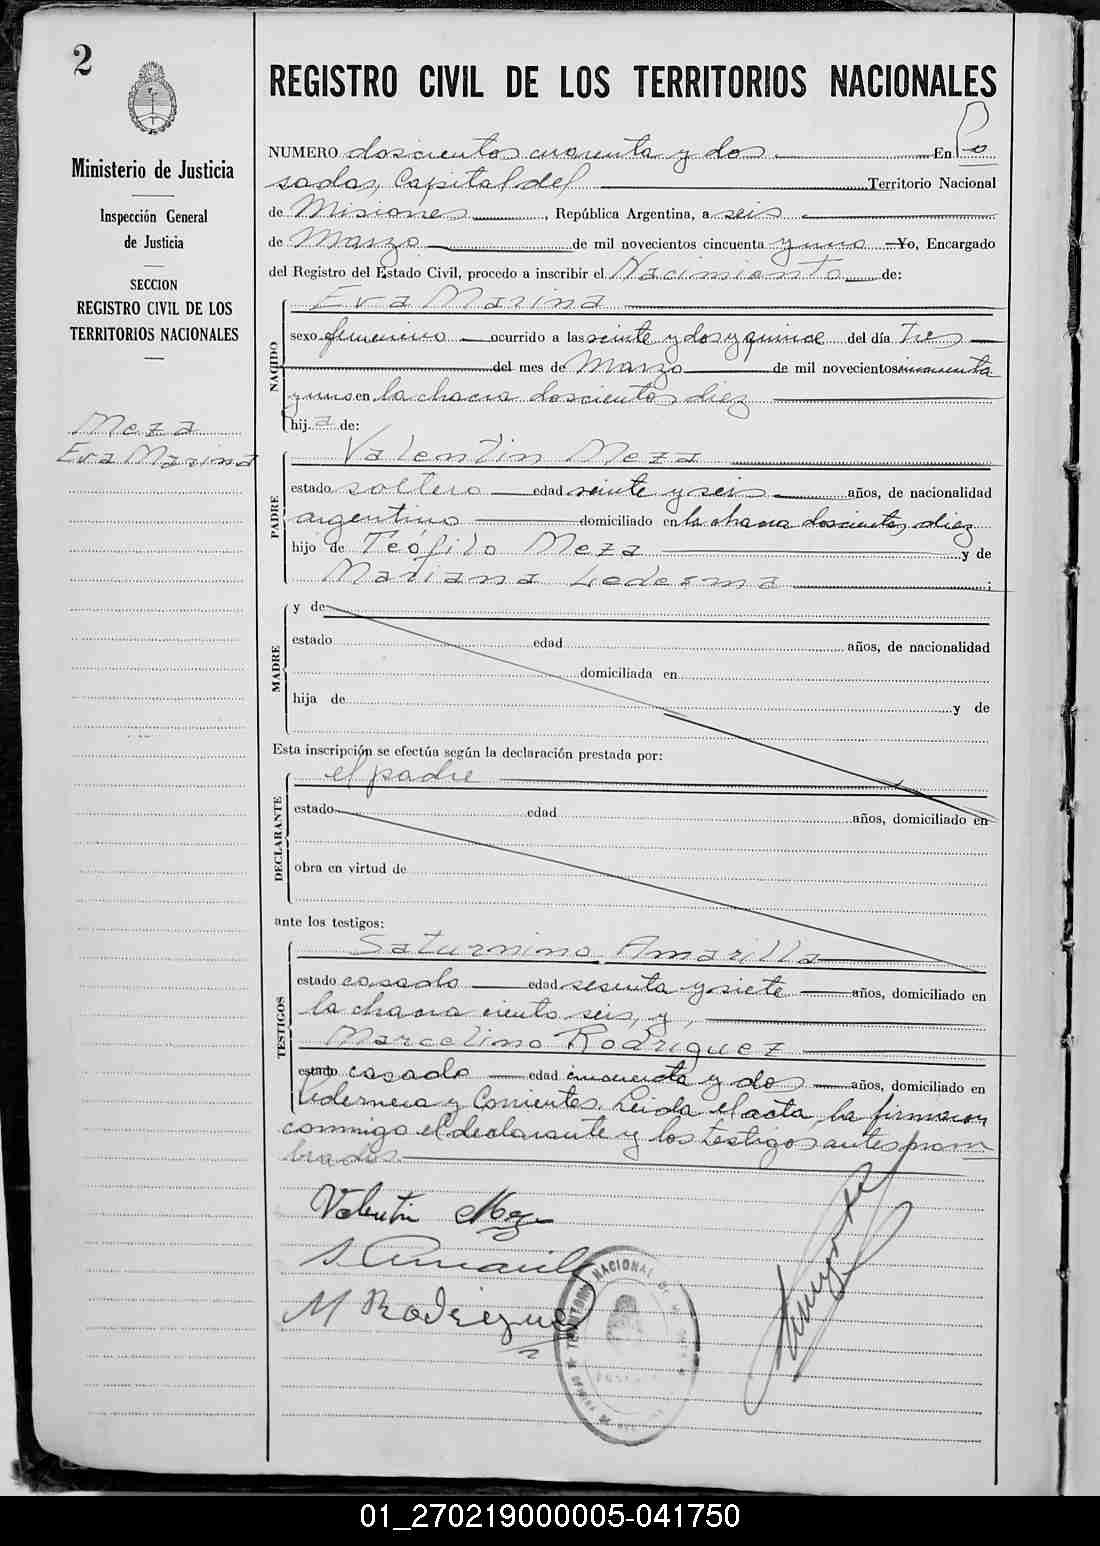 2
Ministerio de Justicia
Inspección General
de Justicia
SECCION
REGISTRO CIVIL DE LOS
TERRITORIOS NACIONALES
Meza
Eva Marina
REGISTRO CIVIL DE LOS TERRITORIOS NACIONALES
NUMERO doscientos cuarenta y dos En Po
sadas, Capital del Territorio Nacional
de Misiones, República Argentina, a seis
de Marzo de mil novecientos cincuenta y uno Yo, Encargado
del Registro del Estado Civil, procedo a inscribir el Nacimiento de:
NACIDO
Eva Marina
sexo femenino ocurrido a las veinte y dos y quince del día Tres
del mes de Marzo de mil novecientos cincuenta
y uno en la chacra doscientos diez
hija de:
PADRE
Valentin Meza
estado soltero edad veinte y seis años, de nacionalidad
argentino domiciliado en la chacra doscientos diez
hijo de Teófilo Meza y de
Mariana Ledesma ;
MADRE
y de
estado edad años, de nacionalidad
domiciliada en
hija de y de
Esta inscripción se efectúa según la declaración prestada por:
DECLARANTE
el padre
estado edad años, domiciliado en
obra en virtud de
ante los testigos:
TESTIGOS
Saturnino Amarilla
estado casado edad sesenta y siete años, domiciliado en
la chacra ciento seis, y,
Marcelino Rodriguez
estado casado edad cincuenta y dos años, domiciliado en
Pedernera y Corrientes. Leida el acta, la firmaron
conmigo el declarante y los testigos antes nom
brados.
Valentin Meza
S. Amarilla
M Rodriguez
TERRITORIO NACIONAL DE MISIONES
01_270219000005-041750